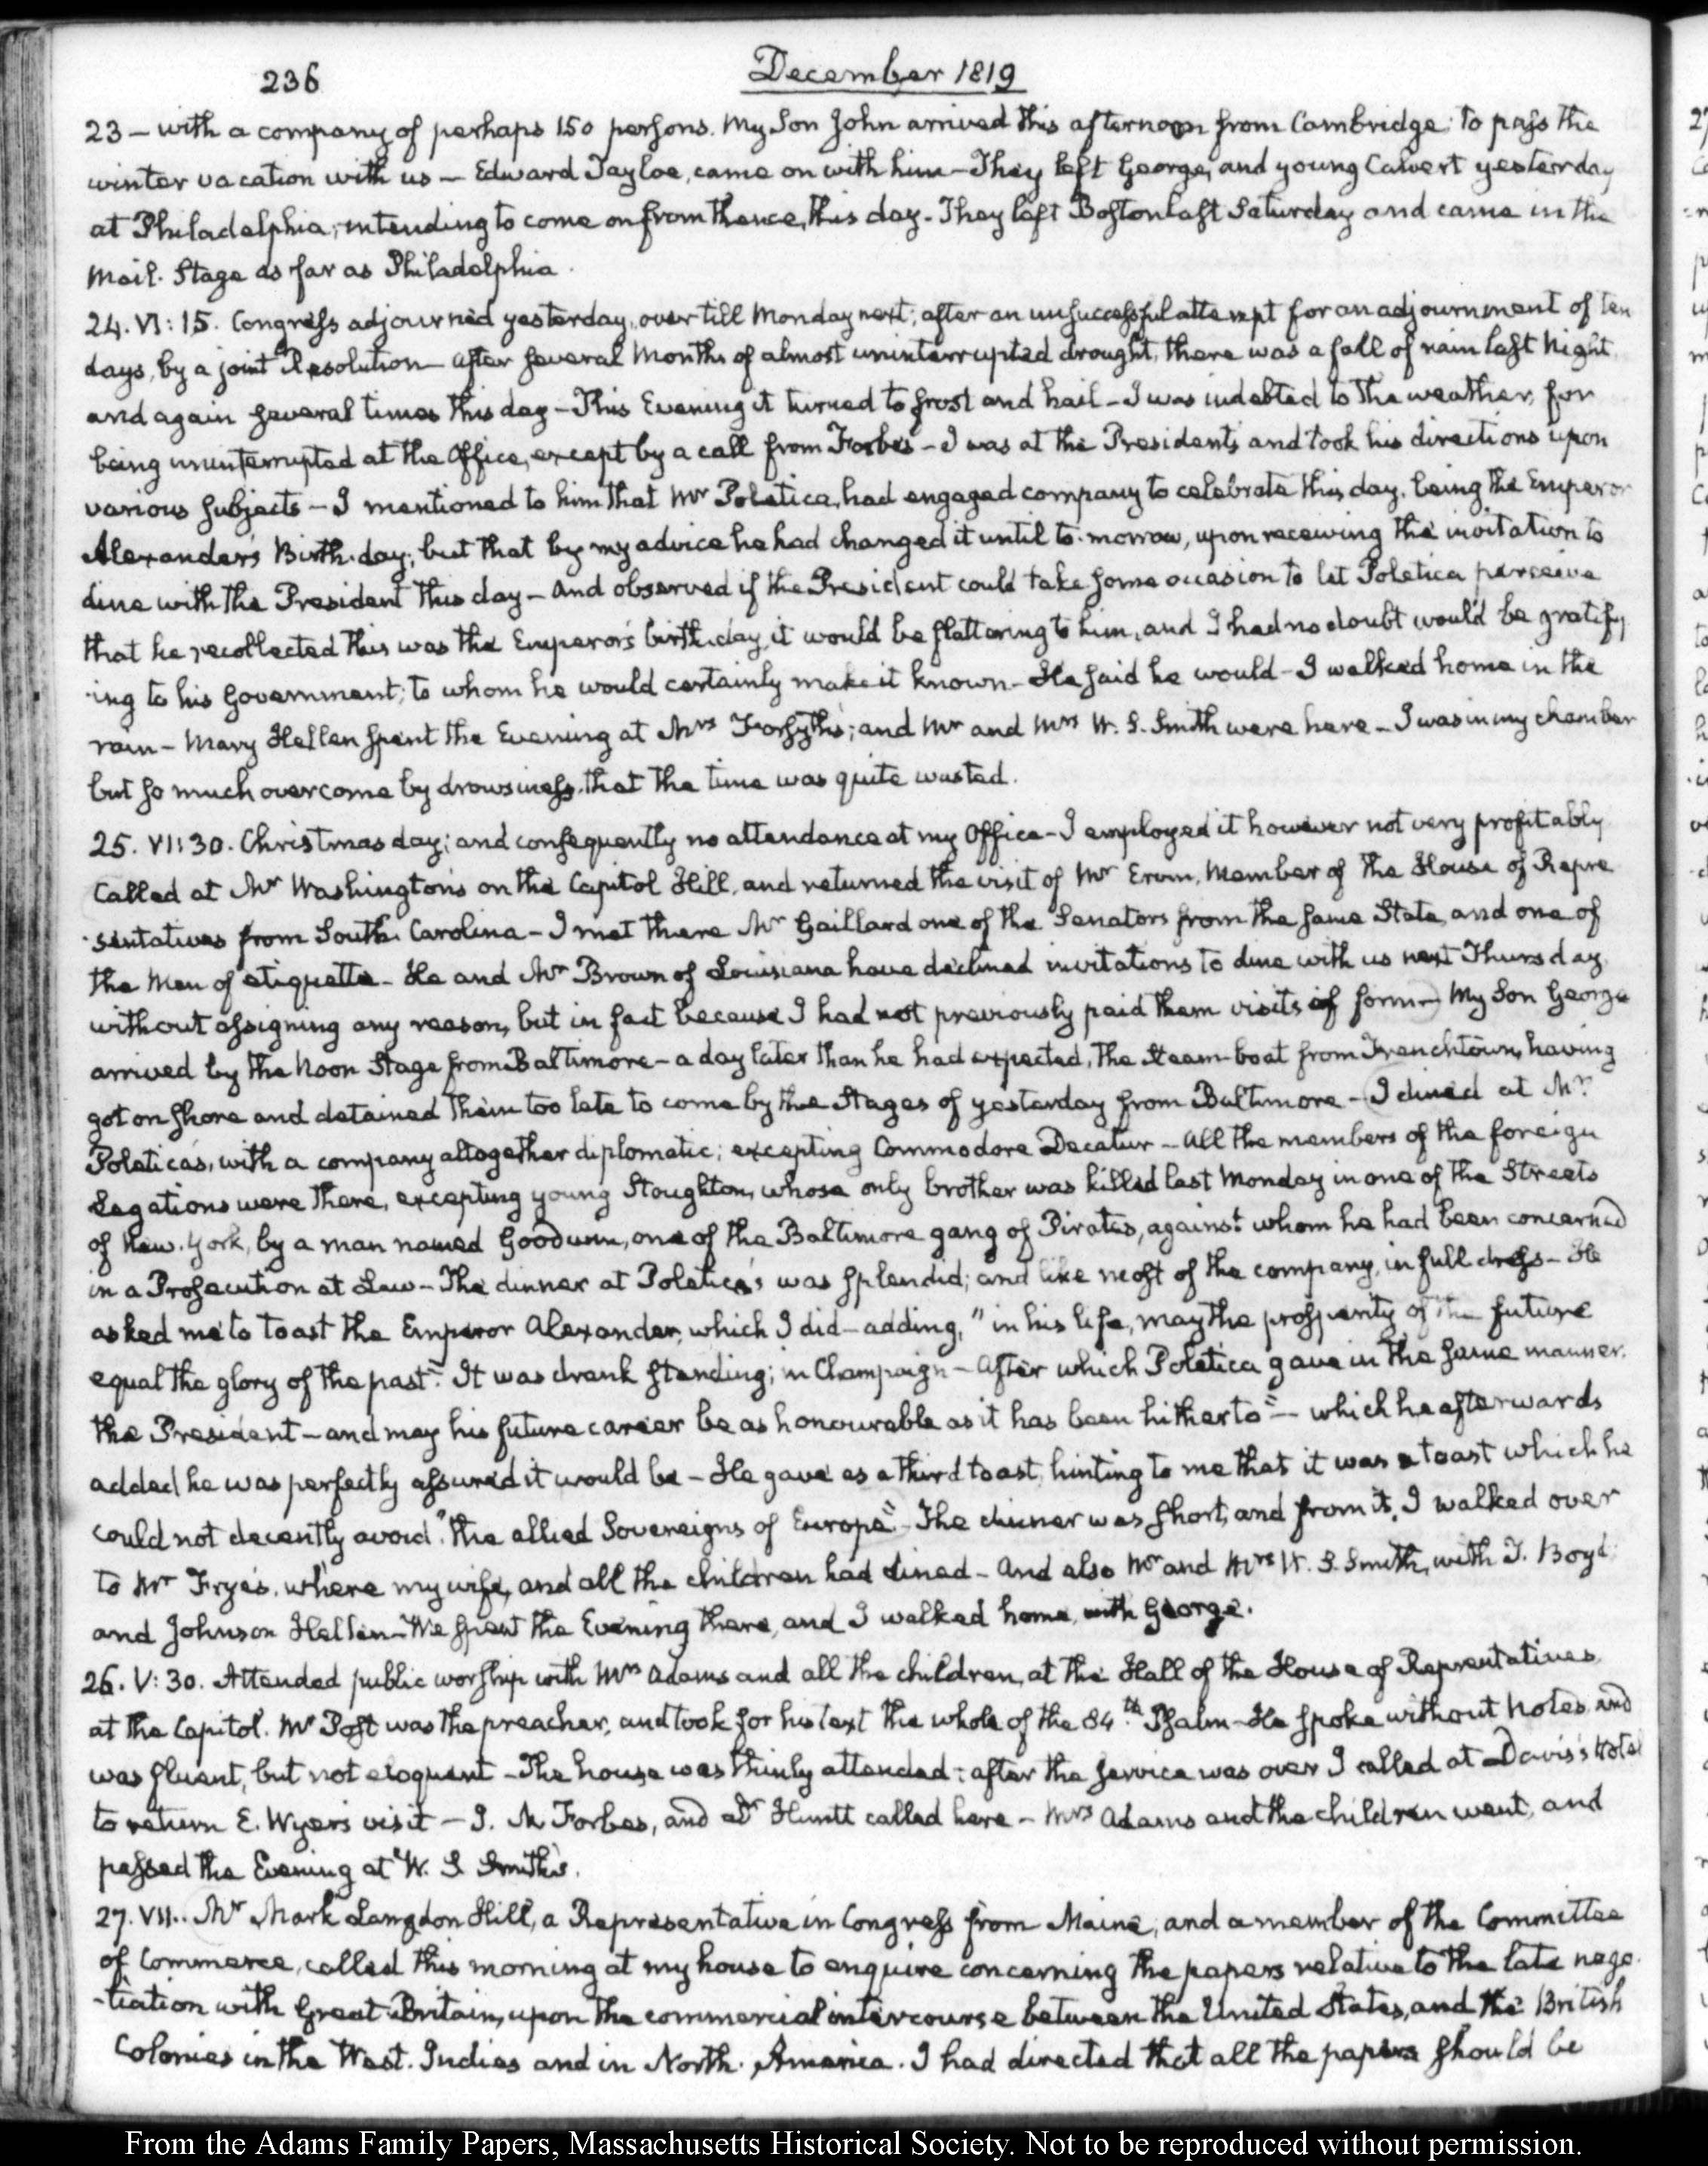 236
December 1819
23 — with a company of perhaps 150 persons. My Son John arrived this afternoon from Cambridge; to pass the
winter vacation with us — Edward Tayloe, came on with him — They left George, and young Calvert yesterday
at Philadelphia; intending to come on from thence, this day. They left Boston last Saturday and came in the
Mail. Stage as far as Philadelphia.
24. VI: 15. Congress adjourned yesterday, over till Monday next; after an unsuccessful attempt for an adjournment of ten
days, by a joint Resolution — After several Months of almost uninterrupted drought, there was a fall of rain last Night
and again several times this day — This Evening it turned to frost and hail — I was indebted to the weather, for
being uninterrupted at the Office, except by a call from Forbes — I was at the President's and took his directions upon
various subjects — I mentioned to him that Mr Poletica, had engaged company to celebrate this day, being the Emperor
Alexander's Birth-day; but that by my advice he had changed it until to-morrow, upon receiving the invitation to
dine with the President this day — And observed if the President could take some occasion to let Poletica perceive
that he recollected this was the Emperor's birth-day, it would be flattering to him, and I had no doubt would be gratify
-ing to his Government; to whom he would certainly make it known — He said he would — I walked home in the
rain — Mary Hellen spent the Evening at Mrs Forsyth's; and Mr and Mrs W. S. Smith were here — I was in my chamber
but so much overcome by drowsiness, that the time was quite wasted.
25. VI: 30. Christmas day; and consequently no attendance at my Office — I employed it however not very profitably
Called at Mr Washington's on the Capitol Hill, and returned the visit of Mr Ervin, Member of the House of Repre
-sentatives from South Carolina — I met there Mr Gaillard one of the Senators from the same State, and one of
the Men of etiquette — He and Mr Brown of Louisiana have declined invitations to dine with us next Thursday
without assigning any reason, but in fact because I had not previously paid them visits of form — My Son George
arrived by the Noon Stage from Baltimore — a day later than he had expected, the Steam-boat from Frenchtown, having
got on shore and detained them too late to come by the Stages of yesterday from Baltimore — I dined at Mr
Poletica's, with a company altogether diplomatic; excepting Commodore Decatur — All the members of the foreign
Legations were there, excepting young Stoughton, whose only brother was killed last Monday in one of the Streets
of New-York, by a man named Goodwin, one of the Baltimore gang of Pirates, against whom he had been concerned
in a Prosecution at Law — The dinner at Poletica's was splendid; and like most of the company, in full dress — He
asked me to toast the Emperor Alexander, which I did — adding, "in his life, may the prosperity of the future
equal the glory of the past." It was drank standing; in Champaign — After which Poletica gave in the same manner.
the President — and may his future career be as honourable as it has been hitherto" — which he afterwards
added he was perfectly assured it would be — He gave as a third toast, hinting to me that it was a toast which he
could not decently avoid "the allied Sovereigns of Europe" — The dinner was short, and from it, I walked over
to Mr Frye's, where my wife, and all the children had dined — And also Mr and Mrs W. S. Smith, with T. Boyd
and Johnson Hellen — We spent the Evening there, and I walked home, with George.
26. V: 30. Attended public worship with Mrs Adams and all the children, at the Hall of the House of Representatives
at the Capitol. Mr Post was the preacher, and took for his text the whole of the 84th Psalm — He spoke without Notes, and
was fluent, but not eloquent — The house was thinly attended: after the service was over I called at Davis's Hotel
to return E. Wyer's visit — J. M Forbes, and Dr Huntt called here — Mrs Adams and the children went, and
passed the Evening at W. S. Smith's.
27. VII.. Mr Mark Langdon Hill, a Representative in Congress from Maine, and a member of the Committee
of Commerce, called this morning at my house to enquire concerning the papers relative to the late nego
-tiation with Great-Britain, upon the commercial intercourse between the United States, and the British
Colonies in the West-Indies and in North-America. I had directed that all the papers should be
From the Adams Family Papers, Massachusetts Historical Society. Not to be reproduced without permission.